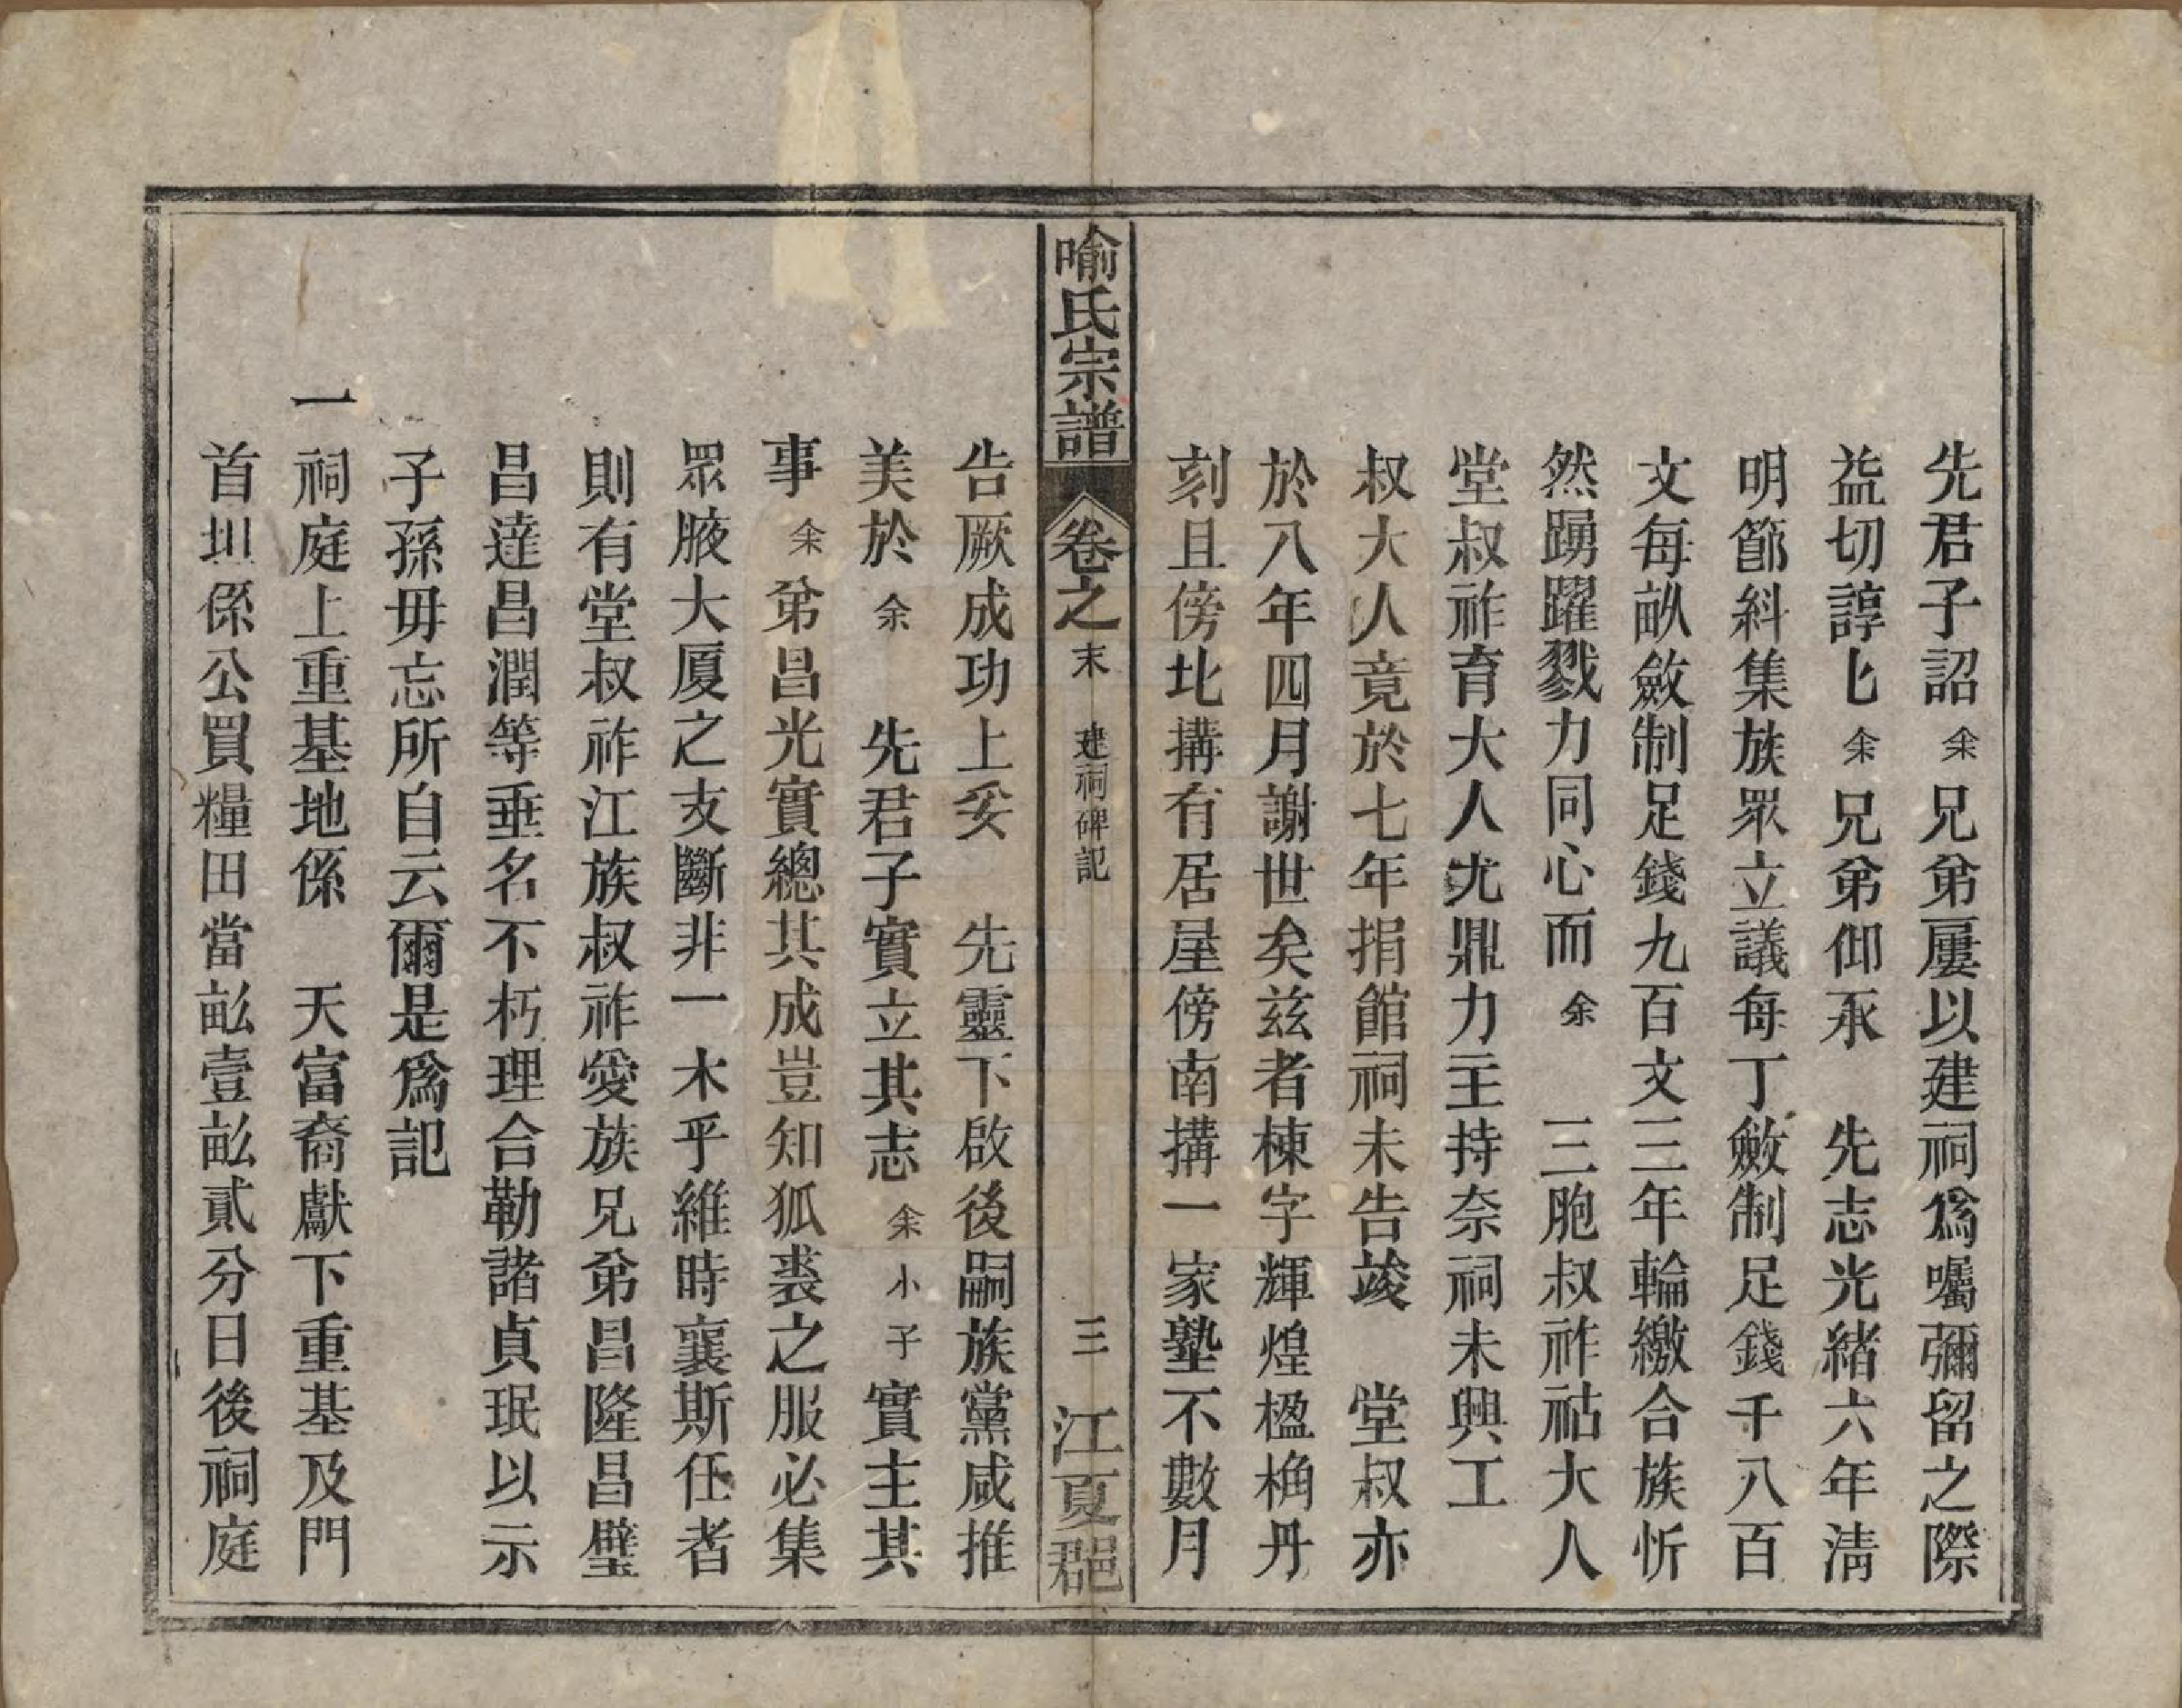 先君子詔余兄弟屢以建祠爲囑彌留之際
益切諄匕余兄弟仰承　先志光緒六年淸
明節斜集族眾立議每丁斂制足錢千八百
文每畝斂制足錢九百文三年輪繳合族忻
然踴躍戮力同心而余　三胞叔祚祜大人
堂叔祚育大人尤鼎力主持奈祠未興工
叔大人竟於七年捐館祠未告竣　堂叔亦
於八年四月謝世矣兹者棟宇輝煌楹桷丹
刻且傍北搆有居屋傍南搆一家塾不數月
喻氏宗譜　卷之末　建祠碑記　三　江夏郡
告厥成功上妥　先靈下啟後嗣族黨咸推
美於余　先君子實立其志余小子實主其
事余弟昌光實總其成豈知狐裘之服必集
眾腋大厦之支斷非一木乎維時襄斯任者
則有堂叔祚江族叔祚愛族兄弟昌隆昌璧
昌達昌潤等垂名不朽理合勒諸貞珉以示
子孫毋忘所自云爾是爲記
一祠庭上重基地係　天富裔獻下重基及門
首圳係公買糧田當畝壹畝貳分日後祠庭